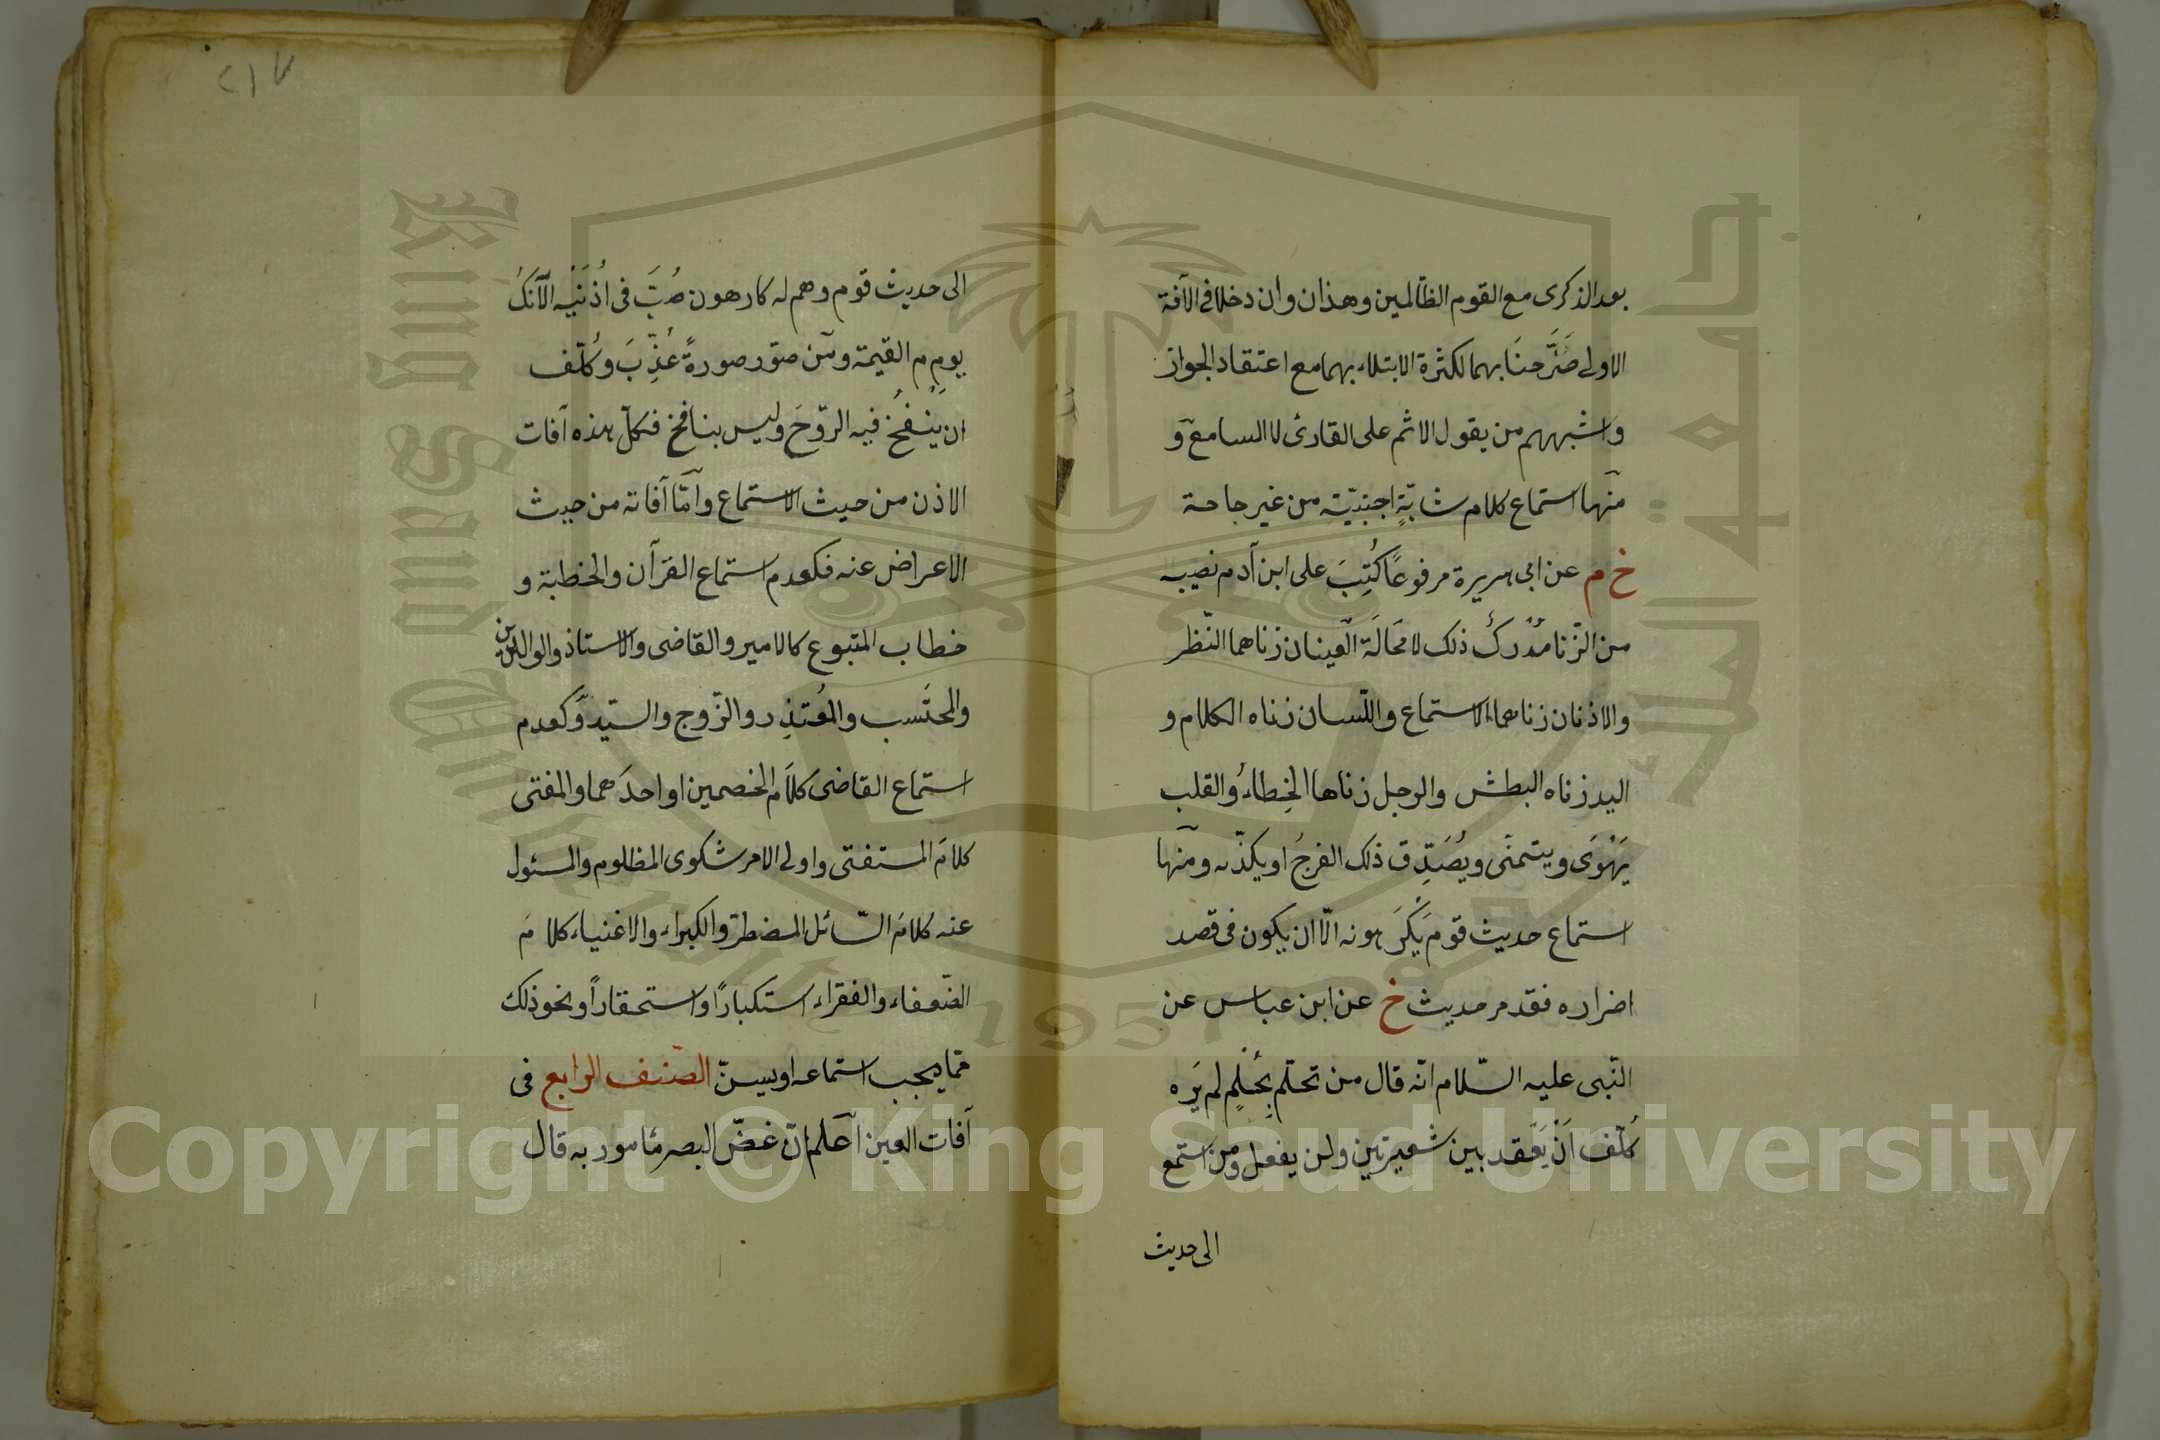 بعد الذكرى مع القوم الظالمين وهذان وان دخلا في الآفة
الاولى صَرَّحنَا بهما لكثرة الابتلاء بهما مع اعتقاد الجواز
واشبههم من يقول الاثم على القارئ لا السامع و
منها استماع كلام شابّةٍ اجنبيّة من غير حاجة
خ م عن ابي هريرة مرفوعًا كُتِبَ على ابن آدم نصيبه
من الزّنا مُدْرِكُ ذلك لا مَحَالَة العينان زناهما النّظر
والاذنان زناهما الاستماع واللّسان زناه الكلام و
اليد زناه البطش والرجل زناها الخِطاءُ والقلب
يَهْوَى ويتمنّى ويُصَدِّق ذلك الفرجُ او يكذّبه ومنها
استماع حديث قوم يَكْرَهونه الّا ان يكون في قصد
اضراره فقد مر حديث خ عن ابن عباس عن
النّبى عليه السّلام انّه قال من تحلّم بحُلْمٍ لم يَرَه
كُلّف اَنْ يَعْقد بين شعيرتين ولن يفعل ومن استمع
الى حديث
٢١٣
الى حديث قوم وهم له كارهون صُبَّ فى اُذنَيْه الآنُكُ
يوم القيمة ومَن صوّر صورةً عُذِّبَ وكُلّف
ان يَنْفُخَ فيه الرّوحَ وليس بنافخ فكلّ هذه آفات
الاذن من حيث الاستماع وامّا آفاته من حيث
الاعراض عنه فكعدم استماع القرآن والخطبة و
خطاب المتبوع كالامير والقاضى والاستاذ والوالدين
والمحتَسب والمُعْتَذِر والزّوج والسّيّد وكعدم
استماع القاضى كلامَ الخصمين او احدَهما والمفتى
كلامَ المستفتى واولى الامر شكوى المظلوم والمسئول
عنه كلامَ السّائل المضطرّ والكبراء والاغنياء كلامَ
الضّعفاء والفقراء استكبارًا واستحقارًا ونحو ذلك
ممّا يجب استماعه او يسنّ الصّنف الرابع فى
آفات العين اعلم انّ غضّ البصر مأمور به قال
King Saud University
جامعة الملك سعود
1957
Copyright © King Saud University